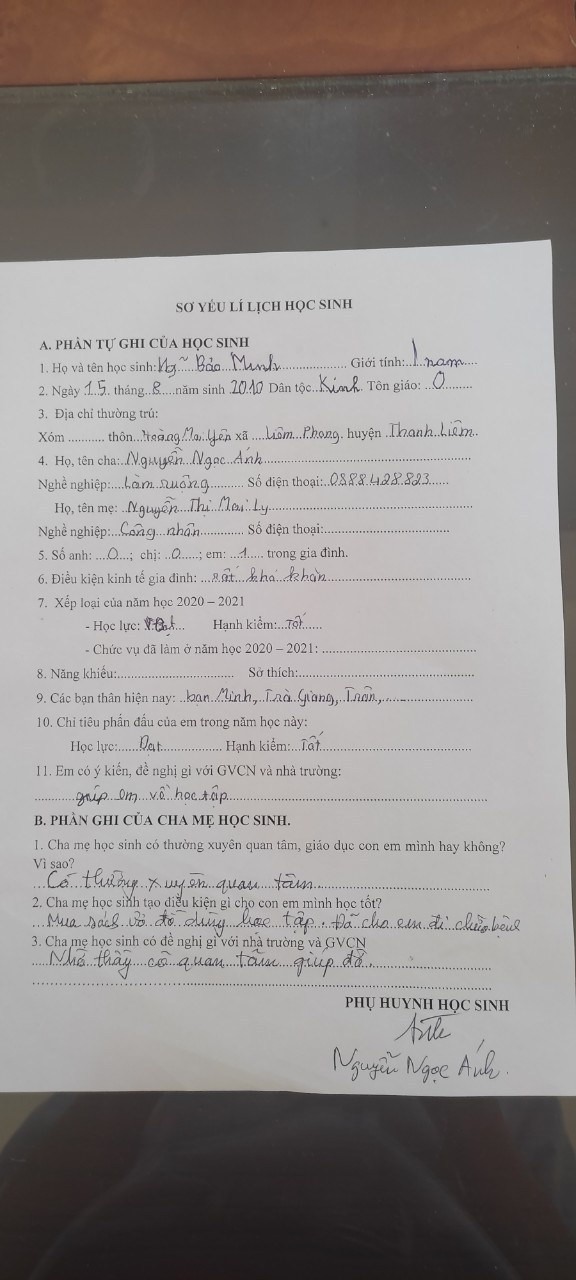 SƠ YẾU LÍ LỊCH HỌC SINH
A. PHẦN TỰ GHI CỦA HỌC SINH
1. Họ và tên học sinh: Ng~ Bảo Minh Giới tính: nam
2. Ngày 15 tháng 8 năm sinh 2010 Dân tộc Kinh Tôn giáo: 0
3. Địa chỉ thường trú:
Xóm .......... thôn Hoàng Mai Yên xã Liêm Phong, huyện Thanh Liêm
4. Họ, tên cha: Nguyễn Ngọc Ánh
Nghề nghiệp: Làm ruộng Số điện thoại: 0888.428.823
Họ, tên mẹ: Nguyễn Thị Mai Ly
Nghề nghiệp: Công nhân Số điện thoại:
5. Số anh: 0; chị: 0; em: 1 trong gia đình.
6. Điều kiện kinh tế gia đình: rất khó khăn
7. Xếp loại của năm học 2020 – 2021
- Học lực: Đạt Hạnh kiểm: Tốt
- Chức vụ đã làm ở năm học 2020 – 2021:
8. Năng khiếu: Sở thích:
9. Các bạn thân hiện nay: bạn Minh, Trà Giang, Trân,
10. Chỉ tiêu phấn đấu của em trong năm học này:
Học lực: Đạt Hạnh kiểm: Tốt
11. Em có ý kiến, đề nghị gì với GVCN và nhà trường:
giúp em về học tập
B. PHẦN GHI CỦA CHA MẸ HỌC SINH.
1. Cha mẹ học sinh có thường xuyên quan tâm, giáo dục con em mình hay không?
Vì sao?
Có thường xuyên quan tâm.
2. Cha mẹ học sinh tạo điều kiện gì cho con em mình học tốt?
Mua sách vở đồ dùng học tập. Đã cho em đi chữa bệnh
3. Cha mẹ học sinh có đề nghị gì với nhà trường và GVCN
Nhờ thầy cô quan tâm giúp đỡ.
PHỤ HUYNH HỌC SINH
Ánh
Nguyễn Ngọc Ánh.